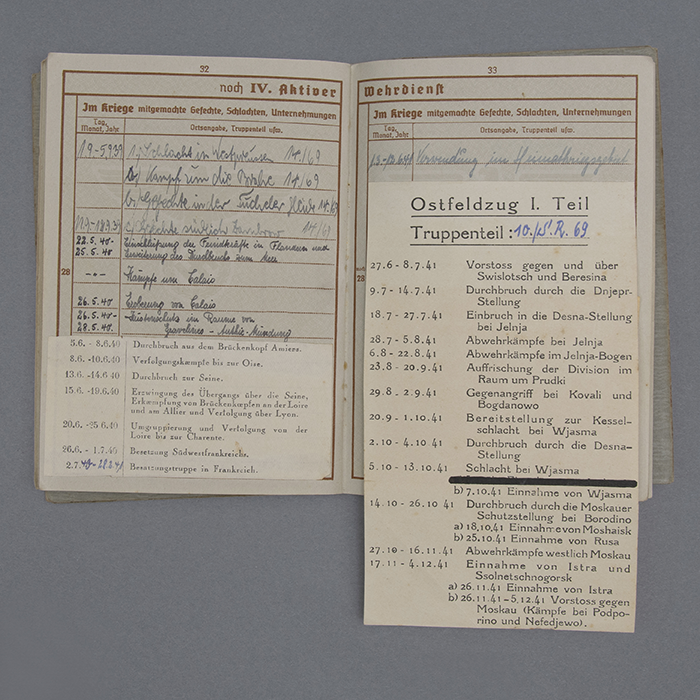 32
noch IV. Aktiver
Im Kriege mitgemachte Gefechte, Schlachten, Unternehmungen
Tag, Monat, Jahr
Ortsangabe, Truppenteil usw.
1.9.-5.9.39 1.) Schlacht in Westpreußen 14/69
a) Kampf um die Brahe 14/69
b) Gefechte in der Tucheler Heide 14/69
c) Gefechte südlich 14/69
22.5.40- Einschließung der Feindkräfte in Flandern und
25.5.40 Erweiterung des Durchbruchs zum Meer
28
-"- Kämpfe um Calais
26.5.40 Eroberung von Calais
26.5.40- Küstenschutz im Raume von
28.5.40 Gravelines - Authie-Mündung
5.6. - 8.6.40 Durchbruch aus dem Brückenkopf Amiens.
8.6.-10.6.40 Verfolgungskämpfe bis zur Oise.
13.6.-14.6.40 Durchbruch zur Seine.
15.6.-19.6.40 Erzwingung des Übergangs über die Seine,
Erkämpfung von Brückenköpfen an der Loire
und am Allier und Verfolgung über Lyon.
20.6. -25.6.40 Umgruppierung und Verfolgung von der
Loire bis zur Charente.
26.6. - 1.7.40 Besetzung Südwestfrankreichs.
2.7.40-28.2.41 Besatzungstruppe in Frankreich.
33
Wehrdienst
Im Kriege mitgemachte Gefechte, Schlachten, Unternehmungen
Tag, Monat, Jahr
Ortsangabe, Truppenteil usw.
Verwendung im Heimatkriegsgebiet
Ostfeldzug I. Teil
Truppenteil: 10./S.R. 69
27.6 - 8.7.41 Vorstoss gegen und über
Swislotsch und Beresina
9.7 - 14.7.41 Durchbruch durch die Dnjepr-
Stellung
18.7 - 27.7.41 Einbruch in die Desna-Stellung
bei Jelnja
28.7 - 5.8.41 Abwehrkämpfe bei Jelnja
6.8 - 22.8.41 Abwehrkämpfe im Jelnja-Bogen
23.8 - 20.9.41 Auffrischung der Division im
Raum um Prudki
29.8 - 2.9.41 Gegenangriff bei Kovali und
Bogdanowo
20.9 - 1.10.41 Bereitstellung zur Kessel-
schlacht bei Wjasma
2.10 - 4.10.41 Durchbruch durch die Desna-
Stellung
5.10 - 13.10.41 Schlacht bei Wjasma
b) 7.10.41 Einnahme von Wjasma
14.10 - 26.10 41 Durchbruch durch die Moskauer
Schutzstellung bei Borodino
a) 18.10.41 Einnahme von Moshaisk
b) 25.10.41 Einnahme von Rusa
27.10 - 16.11.41 Abwehrkämpfe westlich Moskau
17.11 - 4.12.41 Einnahme von Istra und
Ssolnetschnogorsk
a) 26.11.41 Einnahme von Istra
b) 26.11.41-5.12.41 Vorstoss gegen
Moskau (Kämpfe bei Podpo-
rino und Nefedjewo).